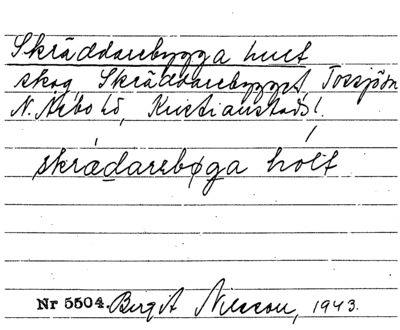 Skräddarebygga hult
skog, Skräddarebygget, Tossjön
N. Åsbo hd, Kristianstads l.
skrádarebøga holt
Nr 5504. Birgit Nilsson, 1943.